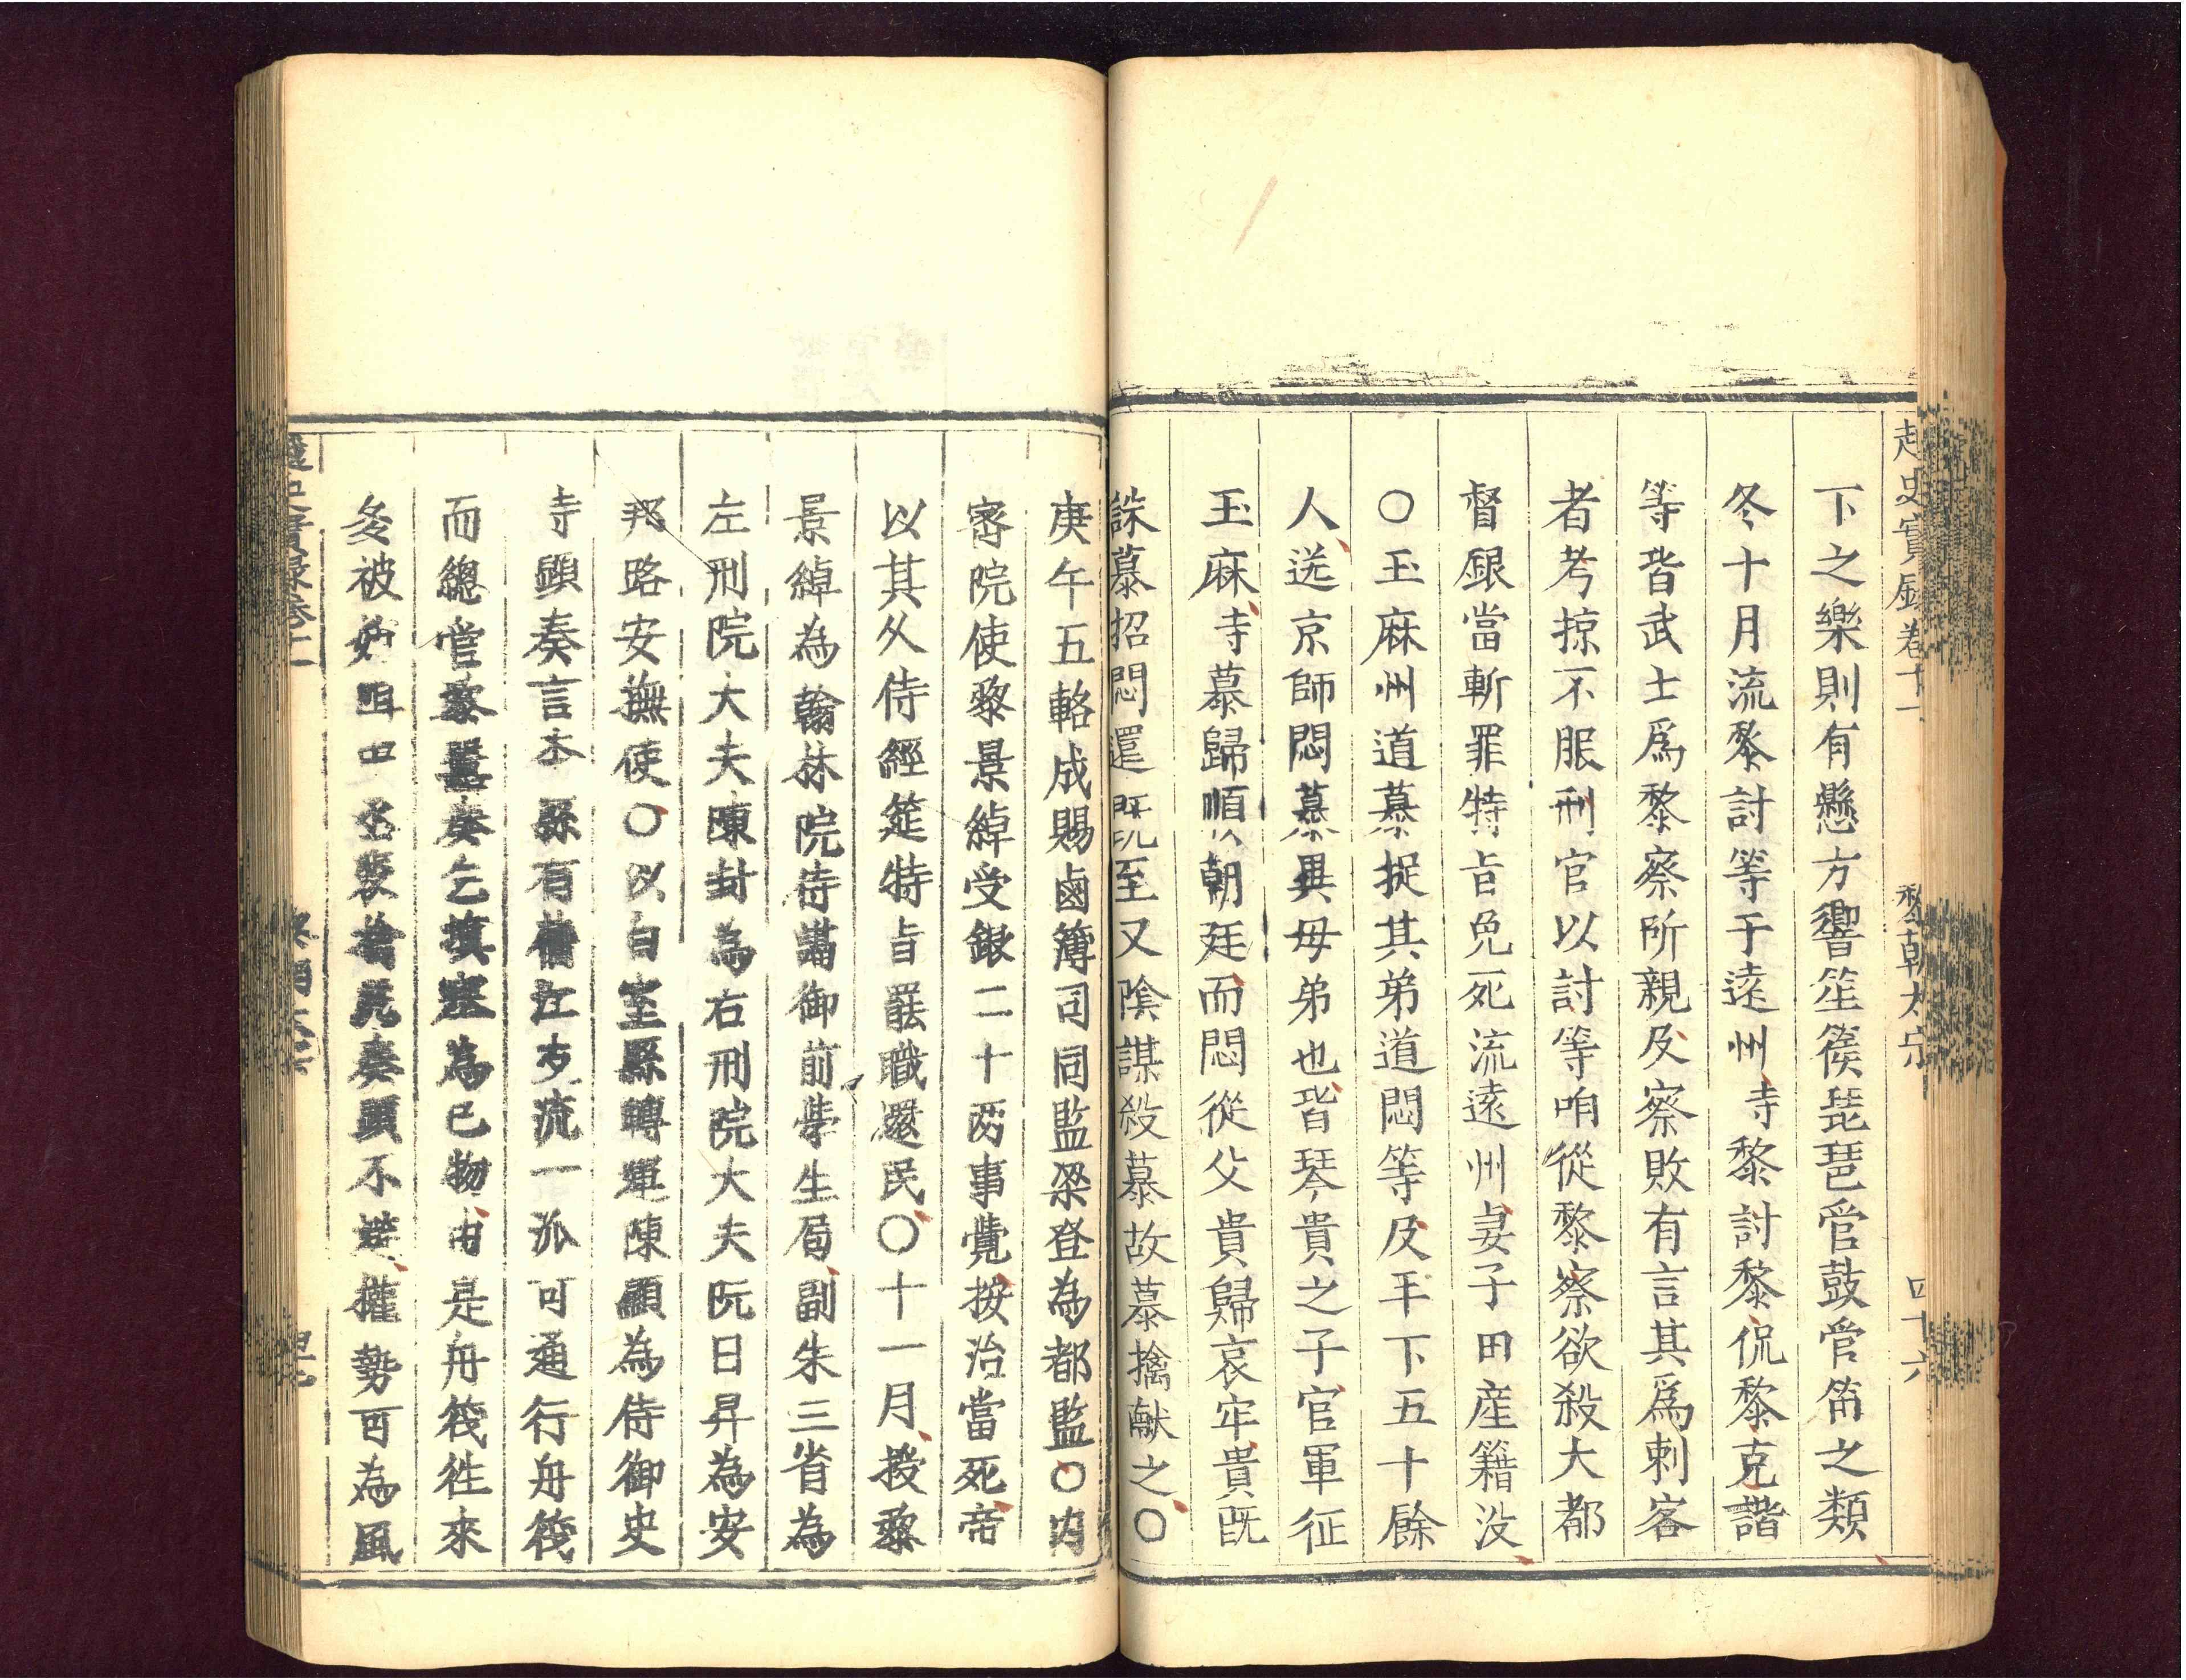 越史實錄卷十一 黎朝太宗 四十六
下之樂則有懸方響箜篌琵琶管鼓管笛之類
冬十月流黎討等于遠州寺黎討黎侃黎克諧
等皆武士爲黎察所親及察敗有言其爲刺客
者考掠不服刑官以討等咱從黎察欲殺大都
督銀當斬罪特旨免死流遠州妻子田産籍没
〇玉麻州道慕捉其弟道悶等及平下五十餘
人送京師悶慕異母弟也皆琴貴之子官軍征
玉麻寺慕歸順以朝廷而悶從父貴歸哀牢貴旣
誅慕招悶還既至又陰謀殺慕故慕擒献之〇
庚午五輅成賜鹵簿司同監梁登為都監〇内
宻院使黎景綽受銀二十两事覺按治當死帝
以其久侍經筵特旨罷職還民〇十一月授黎
景綽為翰林院待詔御前學生局副朱三省為
左刑院大夫陳封為右刑院大夫阮日昇為安
邦路安撫使〇以白室縣轉運陳顯為侍御史
寺顯奏言本縣有舊江支流一派可通行舟筏
而總管黎囂奏乞填塞為已物由是舟筏徃來
多被 奏顕不避權勢可為風